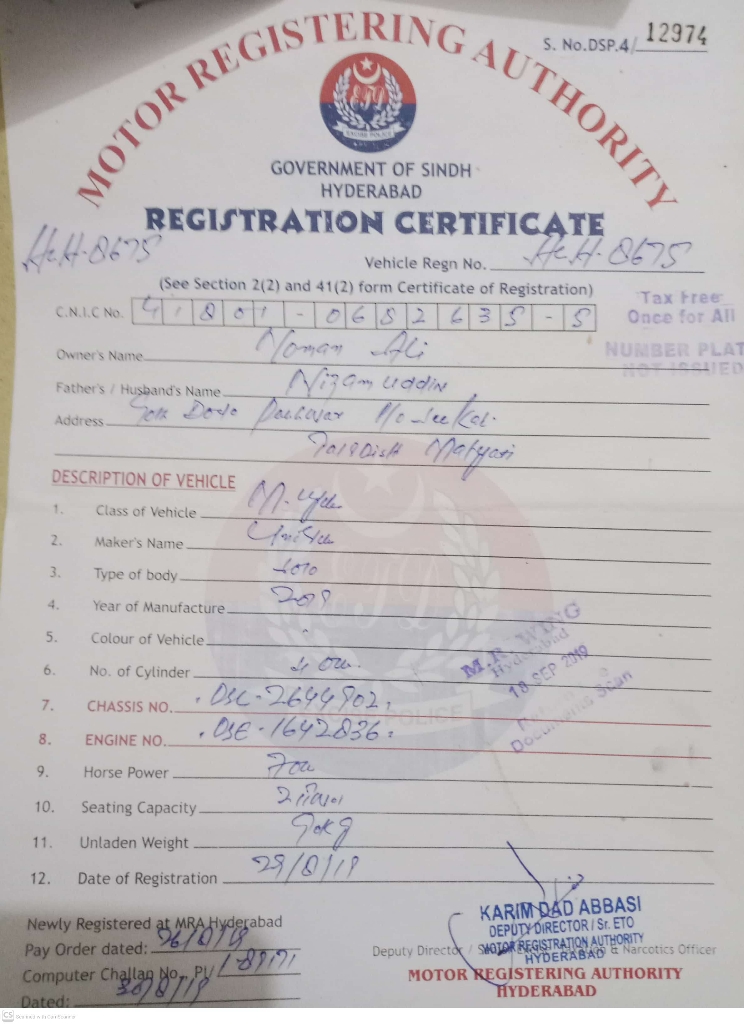 S. No.DSP.4/ 12974
MOTOR REGISTERING AUTHORITY
GOVERNMENT OF SINDH
HYDERABAD
REGISTRATION CERTIFICATE
HCH-8675
Vehicle Regn No. HCH-8675
(See Section 2(2) and 41(2) form Certificate of Registration)
Tax Free
Once for All
C.N.I.C No. 41801-0682635-5
NUMBER PLAT
NOT ISSUED
Owner's Name Noman Ali
Father's / Husband's Name Nizam uddin
Address
Matyari
DESCRIPTION OF VEHICLE
1. Class of Vehicle M. Cycle
2. Maker's Name
3. Type of body Solo
4. Year of Manufacture 2019
5. Colour of Vehicle
6. No. of Cylinder
M.R. WING
Hyderabad
18 SEP 2019
Documents Scan
7. CHASSIS NO. DSC-2644902
8. ENGINE NO. DSE-1642836
POLICE
9. Horse Power 70cc
10. Seating Capacity
11. Unladen Weight
12. Date of Registration 29/8/19
Newly Registered at MRA Hyderabad
Pay Order dated: 26/8/19
Computer Challan No. PI/
Dated: 30/8/19
KARIM DAD ABBASI
DEPUTY DIRECTOR / Sr. ETO
MOTOR REGISTRATION AUTHORITY
HYDERABAD
Deputy Director / & Narcotics Officer
MOTOR REGISTERING AUTHORITY
HYDERABAD
CS Scanned with CamScanner